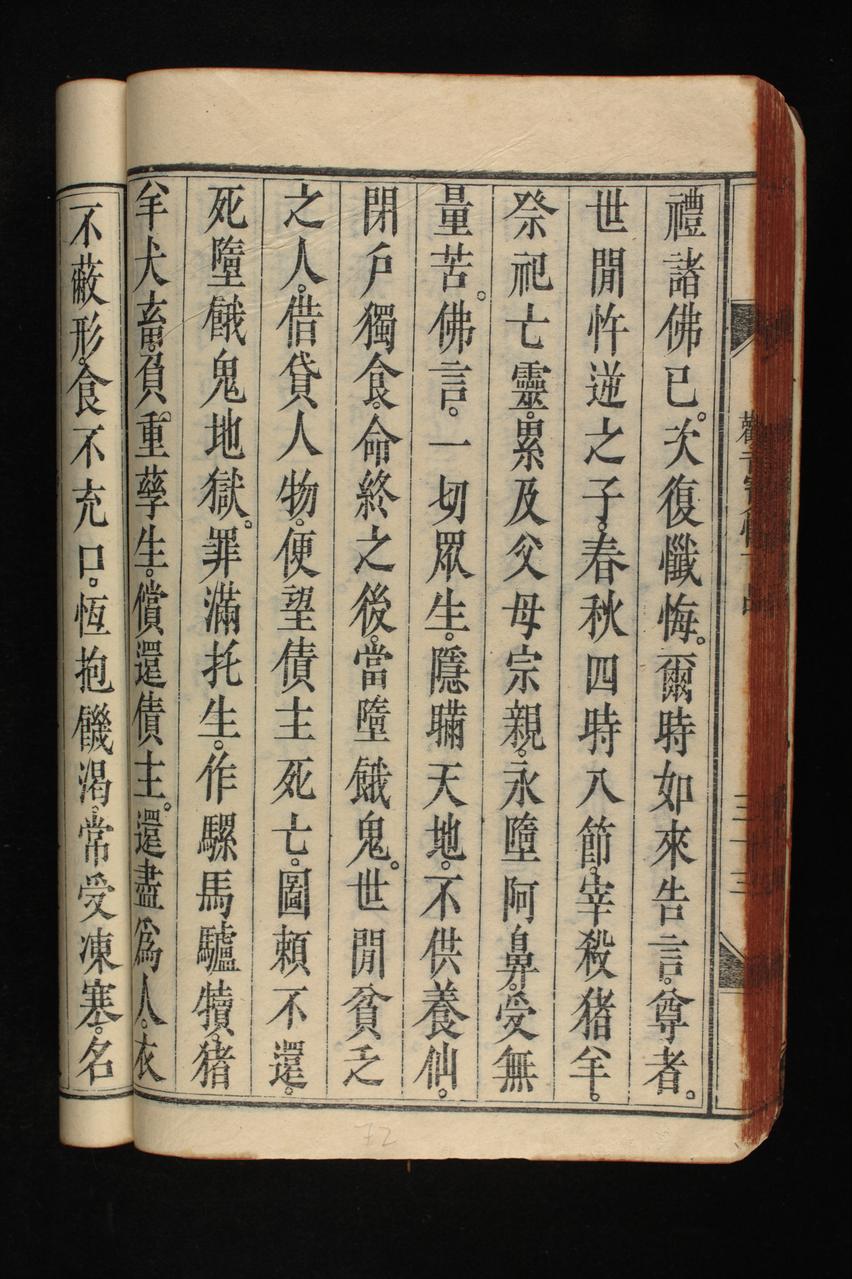 禮諸佛已。次復懺悔。爾時如來告言。尊者。
世閒忤逆之子。春秋四時八節。宰殺猪羊。
祭祀亡靈。累及父母宗親。永墮阿鼻。受無
量苦。佛言。一切眾生。隱瞞天地。不供養仙。
閉户獨食。命終之後。當墮餓鬼。世閒貧乏
之人。借貸人物。便望債主死亡。圖賴不還。
死墮餓鬼地獄。罪滿托生。作騾馬驢犢。猪
羊犬畜。負重孳生。償還債主。還盡爲人。衣
不蔽形。食不充口。恆抱饑渴。常受凍塞。名
三十三
72